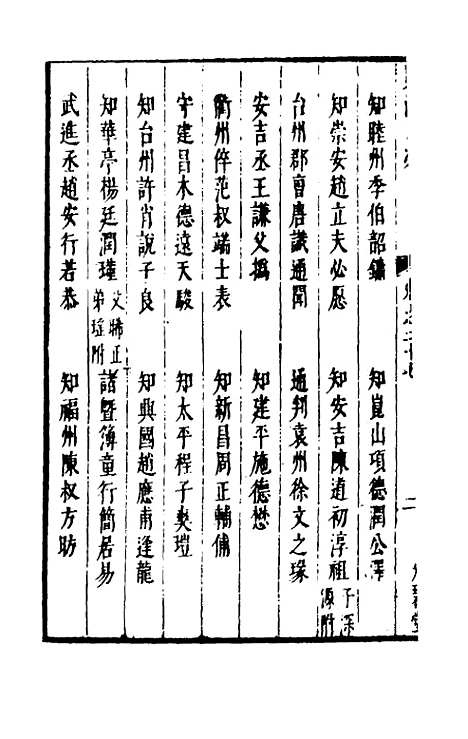 知睦州季伯韶鏞　知崑山項德潤公澤
知崇安趙立夫必愿　知安吉陳道初淳祖子深源附
台州郡曹唐議通聞　通判袁州徐文之瑑
安吉丞王謙父撝　知建平施德懋
衢州倅范叔端士表　知新昌周正輔備
守建昌木德遠天駿　知太平程子奬瑄
知台州許肖說子良　知興國趙應甫逢龍
知華亭楊廷潤瑾父晞正弟瑄附　諸暨簿童行簡居易
武進丞趙安行若恭　知福州陳叔方昉